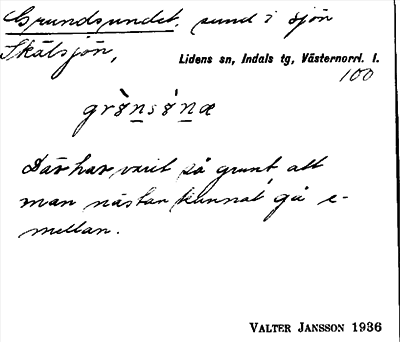 Grundsundet, sund i sjön
Skälsjön,
Lidens sn, Indals tg, Västernorrl. l.
100
grɤ̀nsɤ́næ
Där har varit så grunt, att
man nästan kunnat gå e-
mellan.
VALTER JANSSON 1936